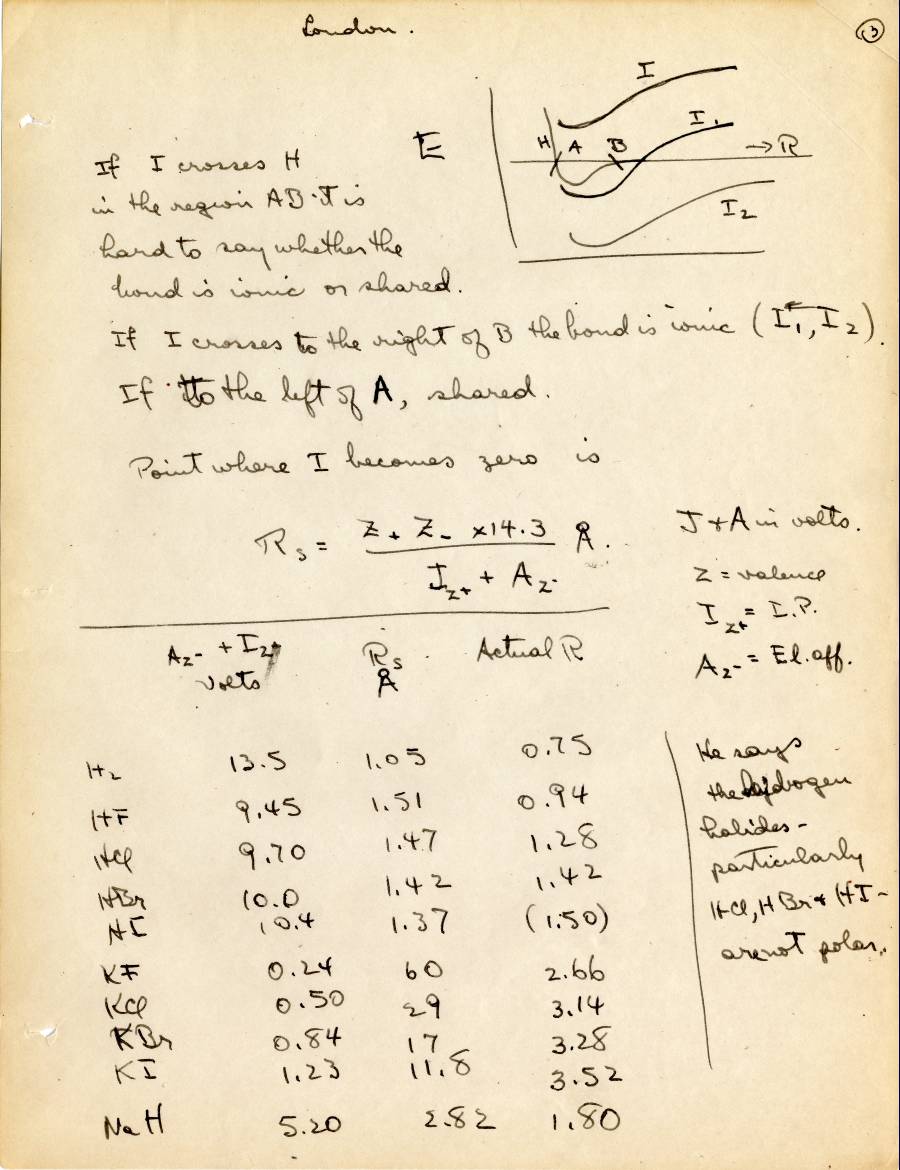 London.
3
E
I
I1
H A B → R
I2
If I crosses H
in the region AB it is
hard to say whether the
bond is ionic or shared.
If I crosses to the right of B the bond is ionic (I1, I2).
If to the left of A, shared.
Point where I becomes zero is
Rs = Z+ Z- ×14.3 / Iz+ + Az- Å.
I + A in volts.
Z = valence
Iz+ = I.P.
Az- = El. aff.
Az- + Iz+ Rs Actual R
volts Å
H2 13.5 1.05 0.75
HF 9.45 1.51 0.94
HCl 9.70 1.47 1.28
HBr 10.0 1.42 1.42
HI 10.4 1.37 (1.50)
KF 0.24 60 2.66
KCl 0.50 29 3.14
KBr 0.84 17 3.28
KI 1.23 11.8 3.52
NaH 5.20 2.82 1.80
He says
the hydrogen
halides -
particularly
HCl, HBr + HI -
are not polar.